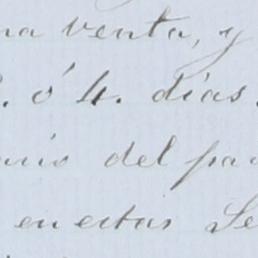 na venta, y
. ó 4. días.
del pa
en estas Se